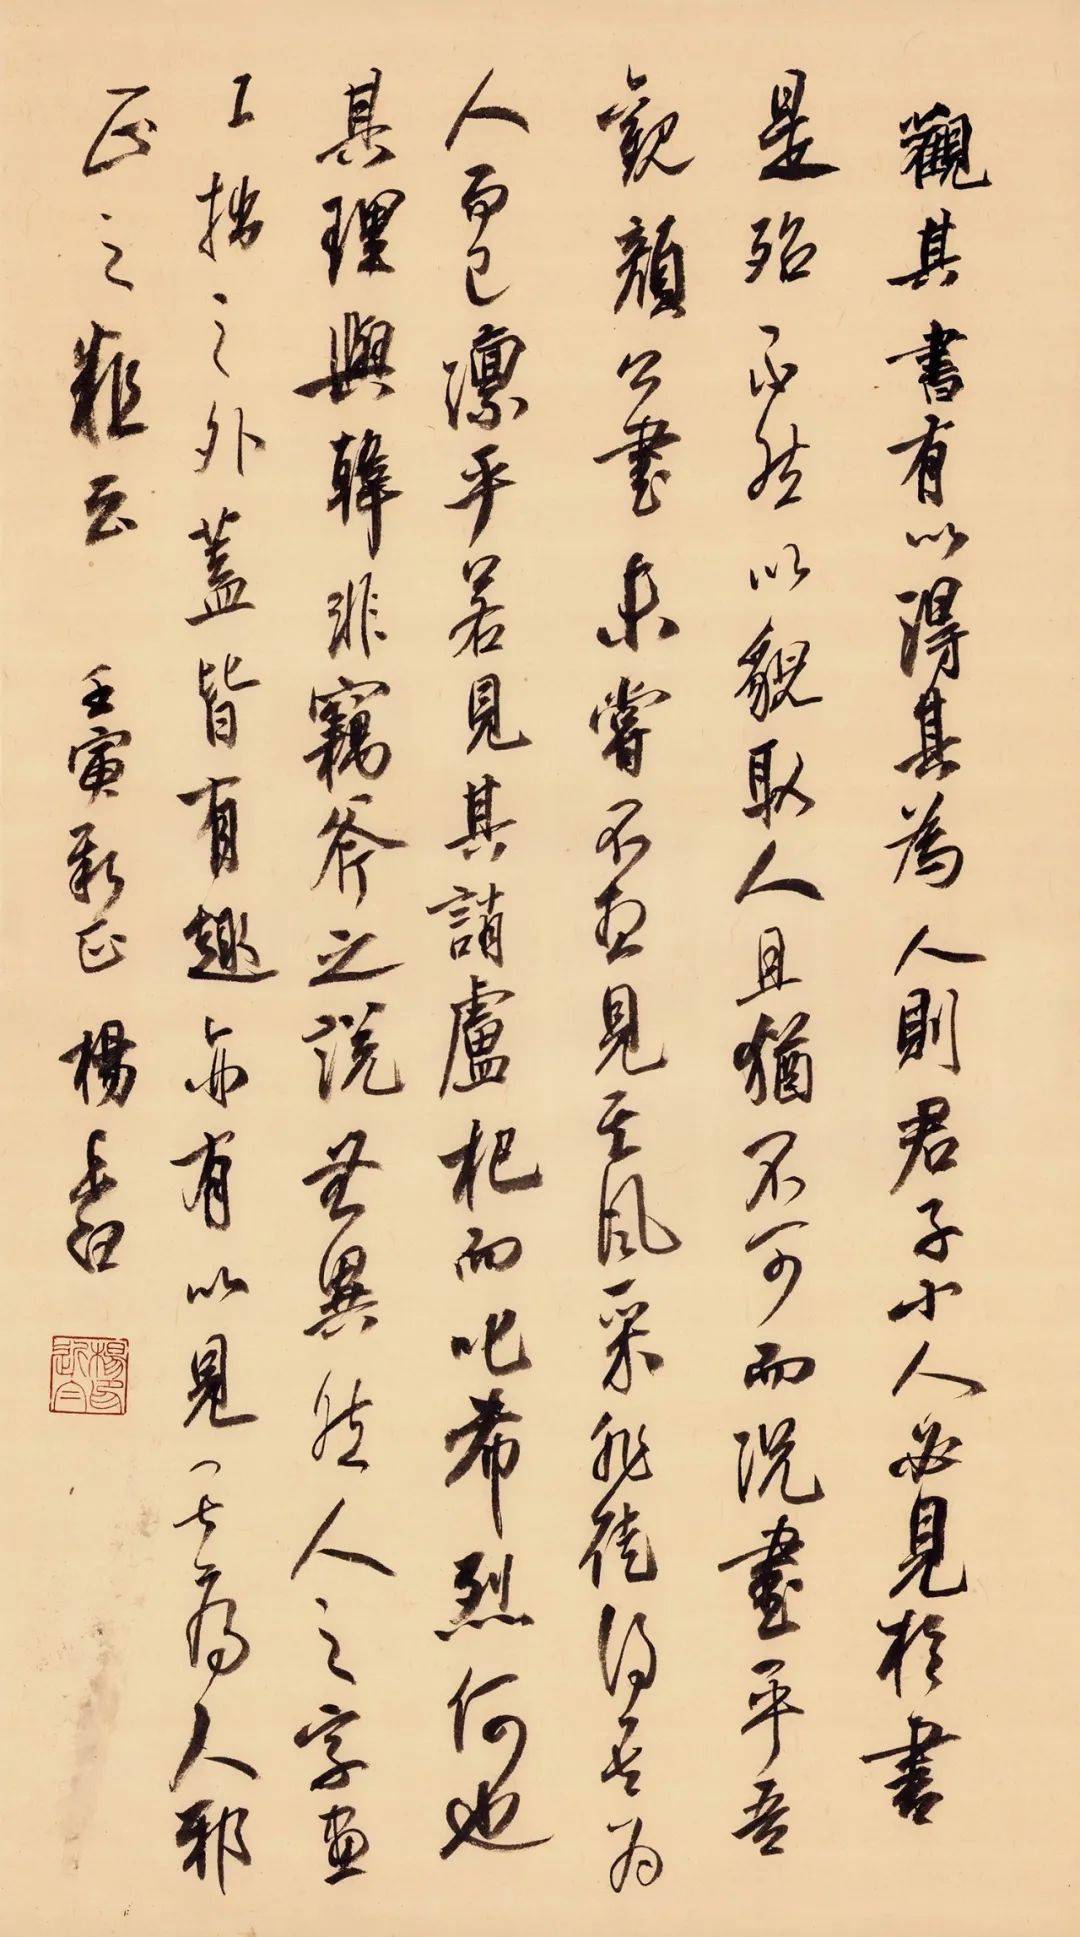 觀其書有以得其為人則君子小人必見於書
是殆不然以貌取人且猶不可而況書乎吾
觀顏公書未嘗不想見其風采非徒得其為
人而已凛乎若見其誚盧杞而叱希烈何也
其理與韓非竊斧之說無異然人之字畫
工拙之外蓋皆有趣亦有以見其為人邪
正之粗云 壬寅 正 楊